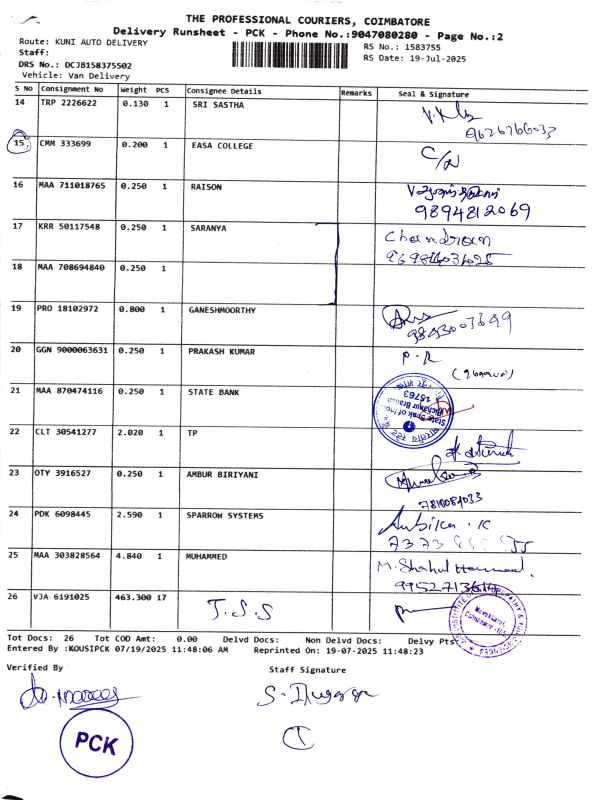 THE PROFESSIONAL COURIERS, COIMBATORE
Delivery Runsheet - PCK - Phone No.:9047080280 - Page No.:2
Route: KUNI AUTO DELIVERY
RS No.: 1583755
Staff:
RS Date: 19-Jul-2025
DRS No.: DCJB158375502
Vehicle: Van Delivery
S No Consignment No Weight PCS Consignee Details Remarks Seal & Signature
14 TRP 2226622 0.130 1 SRI SASTHA
9626766033
15 CMM 333699 0.200 1 EASA COLLEGE
16 MAA 711018765 0.250 1 RAISON
9894812069
17 KRR 50117548 0.250 1 SARANYA
18 MAA 708694840 0.250 1
19 PRO 18102972 0.800 1 GANESHMOORTHY
9843003649
20 GGN 9000063631 0.250 1 PRAKASH KUMAR
P.R
21 MAA 870474116 0.250 1 STATE BANK
State Bank of India
Pichanur Branch
15763
22 CLT 30541277 2.020 1 TP
23 OTY 3916527 0.250 1 AMBUR BIRIYANI
7810084033
24 PDK 6098445 2.590 1 SPARROW SYSTEMS
Ambika.K
25 MAA 303828564 4.840 1 MUHAMMED
M. Shahul Hameed.
26 VJA 6191025 463.300 17 T.S.S
Tot Docs: 26 Tot COD Amt: 0.00 Delvd Docs: Non Delvd Docs: Delvy Pts:
Entered By :KOUSIPCK 07/19/2025 11:48:06 AM Reprinted On: 19-07-2025 11:48:23
Verified By
Staff Signature
PCK